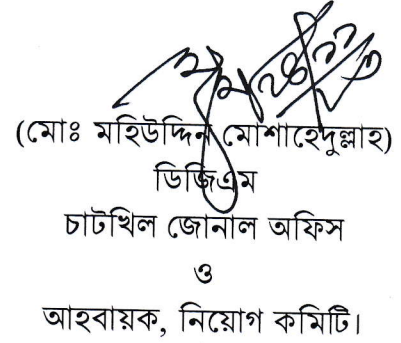 (মোঃ মহিউদ্দিন মোশাহেদুল্লাহ)
ডিজিএম
চাটখিল জোনাল অফিস
ও
আহবায়ক, নিয়োগ কমিটি।